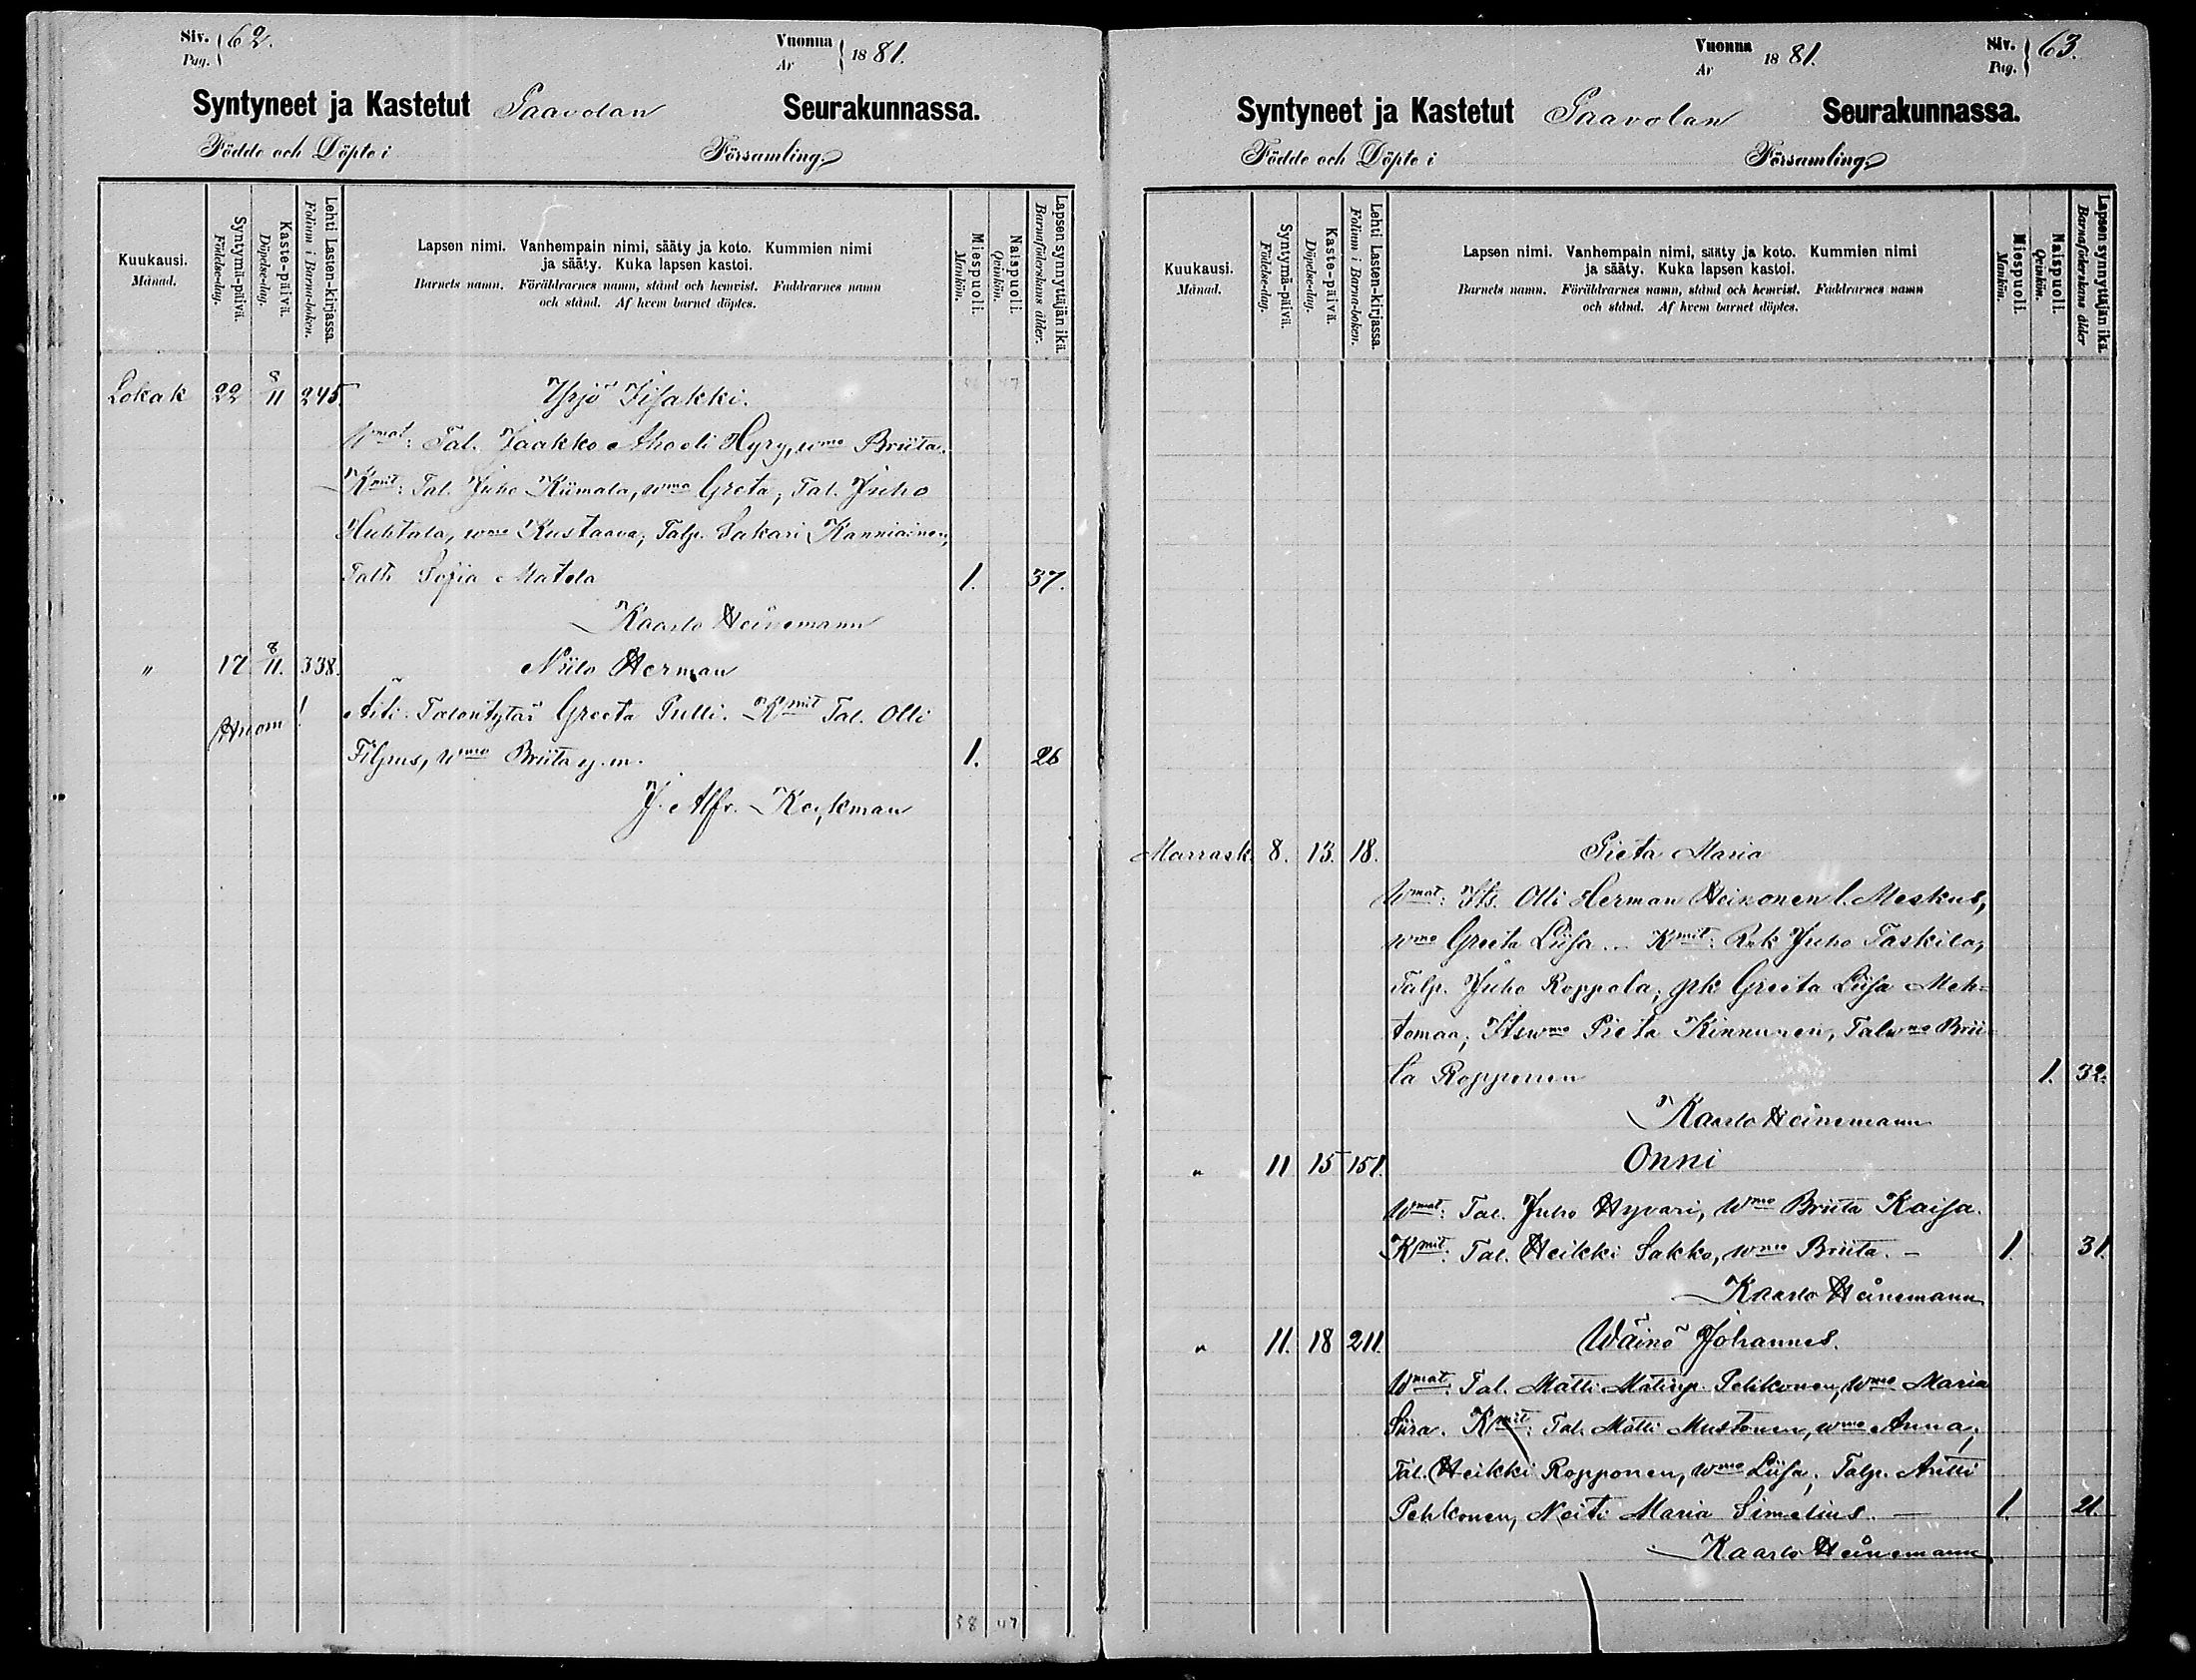 Siv. Pag. 62.
Vuonna År 1881.
Syntyneet ja Kastetut Paavolan Seurakunnassa.
Födde och Döpte i Församling.
Kuukausi. Månad.
Syntymä-päivä. Födelse-dag.
Kaste-päivä. Döpelse-dag.
Lehti Lasten-kirjassa. Folium i Barna-boken.
Lapsen nimi. Vanhempain nimi, sääty ja koto. Kummien nimi
ja sääty. Kuka lapsen kastoi.
Barnets namn. Föräldrarnes namn, stånd och hemvist. Faddrarnes namn
och stånd. Af hvem barnet döptes.
Miespuoli. Mankön.
Naispuoli. Qvinkön.
Lapsen synnyttäjän ikä. Barnaföderskans ålder.
Lokak 22 8/11 245. Yrjö Iisakki.
Wmat: Tal. Jaakko Aho eli Hyry, wmo Briita.
Kmit: Tal. Juho Kiimala, wmo Greta, Tal. Juho
Huhtala, wmo Kustaava, Talp. Sakari Kanniainen,
Talt. Sofia Matela 1. 37.
Kaarlo Heinemann
" 17 8/11. 338. Niilo Herman
Huom! Äiti. Talontytär Greeta Pulli. Kmit Tal. Olli
Filpus, wmo Briita y. m. 1. 26
J. Alfr. Keckman
38 47
Vuonna År 1881.
Siv. Pag. 63.
Syntyneet ja Kastetut Paavolan Seurakunnassa.
Födde och Döpte i Församling.
Kuukausi. Månad.
Syntymä-päivä. Födelse-dag.
Kaste-päivä. Döpelse-dag.
Lehti Lasten-kirjassa. Folium i Barna-boken.
Lapsen nimi. Vanhempain nimi, sääty ja koto. Kummien nimi
ja sääty. Kuka lapsen kastoi.
Barnets namn. Föräldrarnes namn, stånd och hemvist. Faddrarnes namn
och stånd. Af hvem barnet döptes.
Miespuoli. Mankön.
Naispuoli. Qvinkön.
Lapsen synnyttäjän ikä. Barnaföderskans ålder
Marrask. 8. 13. 18. Pieta Maria
Wmat: Its. Olli Herman Heinonen l. Meskus,
wmo Greeta Liisa. - Kmit: Rek Juho Taskila,
Talp. Juho Roppola, pk Greeta Liisa Meh-
tomaa, Itswmo Pieta Kinnunen, Talwmo Brii-
ta Ropponen 1. 32.
Kaarlo Heinemann
" 11 15 151 Onni
Wmat: Tal. Juho Hyvari, Wmo Briita Kaisa.
Kmit: Tal. Heikki Sakko, wmo Briita. - 1. 31.
Kaarlo Heinemann
" 11. 18 211. Wäinö Johannes.
Wmat: Tal. Matti Matinp. Pehkonen, wmo Maria
Siira. Kmit: Tal. Matti Mustonen, wmo Anna,
Tal. Heikki Ropponen, wmo Liisa, Talp. Antti
Pehkonen, Neiti Maria Simelius. - 1. 21.
Kaarlo Heinemann